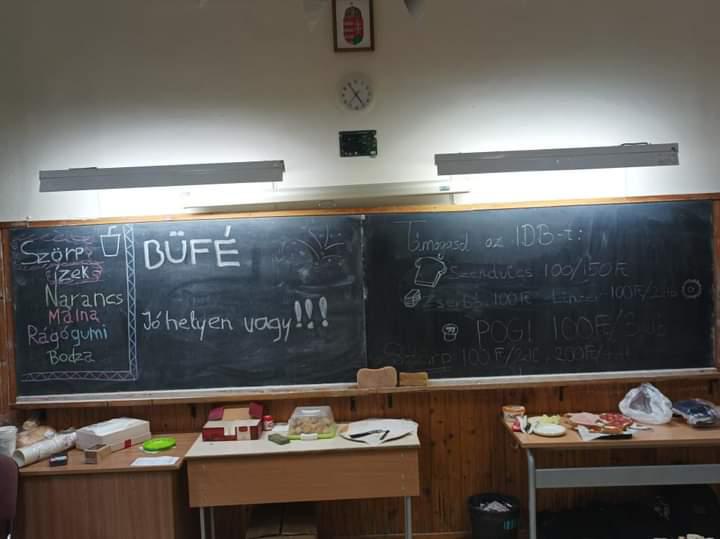 Szörp
ízek
Narancs
Málna
Rágógumi
Bodza
BÜFÉ
Jó helyen vagy!!!
Támogasd az IDB-t:
Szendvics 100/150 Ft
Zserbó: 100 Ft Linzer 100 Ft/2 db
POGI 100 Ft/3 db
Szörp 100 Ft/2 dl 200 Ft/